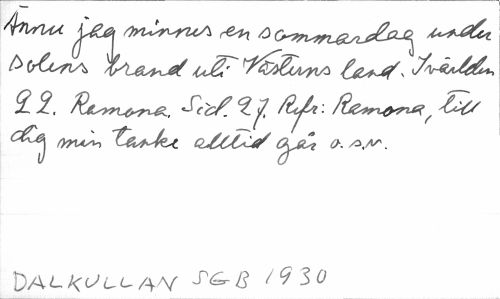 Ännu jag minnes en sommardag under
solens brand uti Västerns land. I världen
22. Ramona. Sid. 27. Refr: Ramona, till
dig min tanke alltid går o.s.v.
DALKULLAN SGB 1930